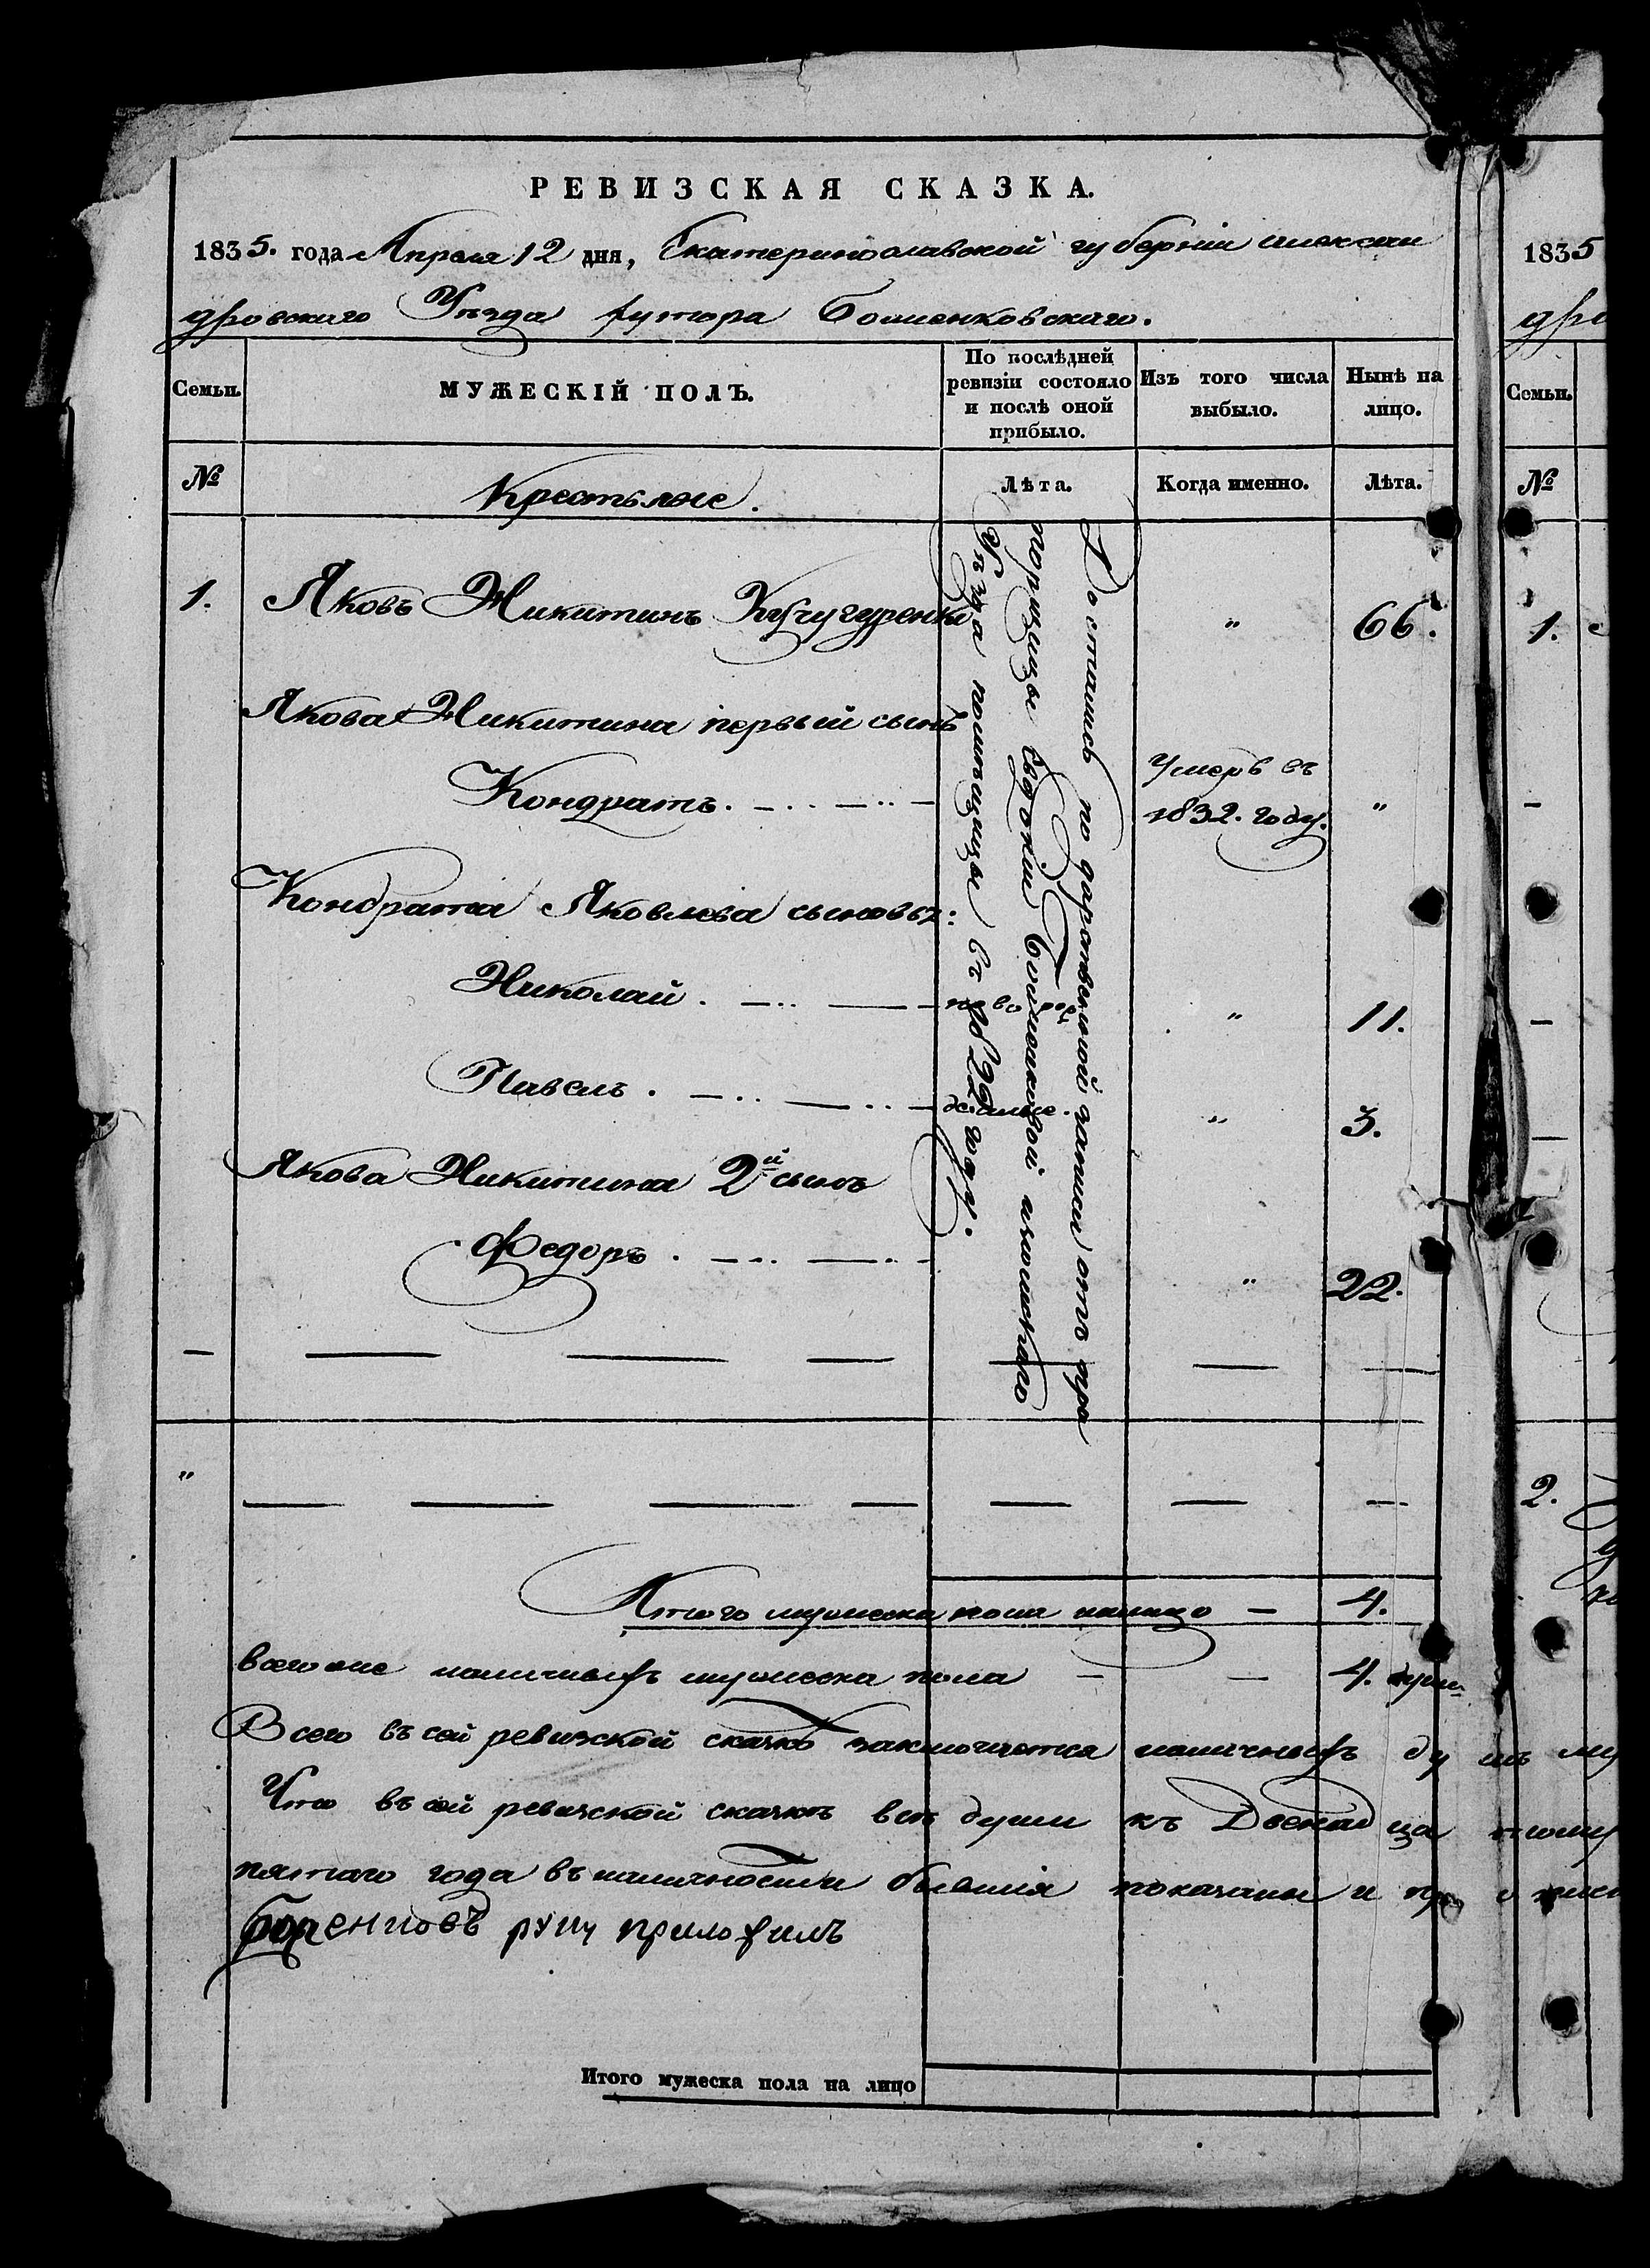 РЕВИЗСКАЯ СКАЗКА.
1835. года Апреля 12 дня, Екатеринославской губерніи Алексан
дровскаго Уѣзда хутора
1835
дро
Семьи.
МУЖЕСКІЙ ПОЛЪ.
По послѣдней
ревизіи состояло
и послѣ оной
прибыло.
Изъ того числа
выбыло.
Нынѣ на
лицо.
Семьи.
№
Крестьяне.
Лѣта.
Когда именно.
Лѣта.
№
Достались по дарственной записи отъ пра
порщицы Евдокіи
Уѣзда помѣщицы въ 1822 году.
1. Яковъ Никитинъ Кучугуренко " 66. 1.
Якова Никитина первый сынъ
Кондратъ. Умеръ въ
1832. году. "
Кондрата Яковлева сыновья:
Николай. ново рож " 11.
Павелъ. " 3.
Якова Никитина 2й сынъ
Федоръ. " 22.
"
2.
Итого мужеска пола налицо — 4.
всего же наличныхъ мужеска пола — — 4. души
Всего въ сей ревизской сказкѣ заключается наличныхъ душъ му
Что въ сей ревизской сказкѣ всѣ души къ Двенадцатому
пятаго года въ наличности бывшія показаны и
руку приложилъ
Итого мужеска пола на лицо